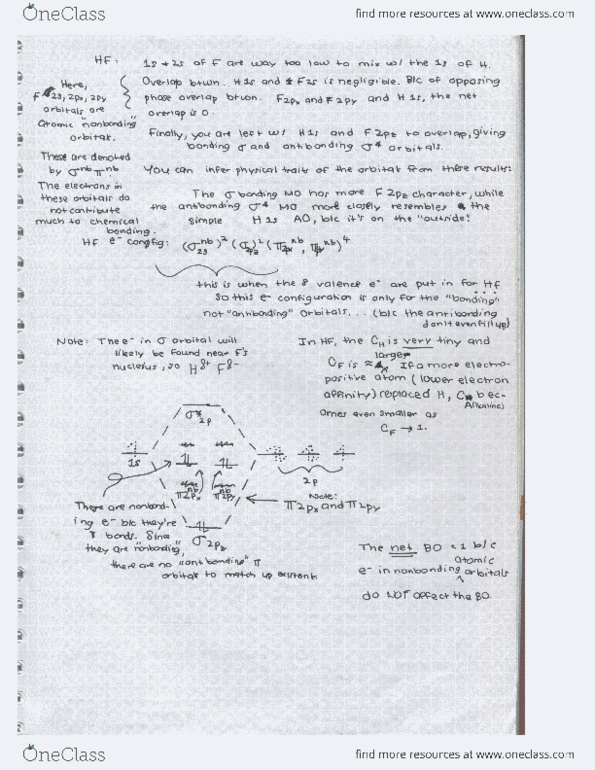 OneClass
find more resources at www.oneclass.com
HF: 1s + 2s of F are way too low to mix w/ the 1s of H.
Overlap btwn. H1s and F2s is negligible. B/c of opposing
phase overlap btwn. F2px and F2py and H1s, the net
overlap is 0.
Here,
F 2s, 2px, 2py
orbitals are
atomic "nonbonding"
orbitals.
Finally, you are left w/ H1s and F2pz to overlap, giving
bonding σ and antibonding σ* orbitals.
These are denoted
by σnb πnb
The electrons in
these orbitals do
not contribute
much to chemical
bonding.
You can infer physical traits of the orbital from these results:
The σ bonding MO has more F 2pz character, while
the antibonding σ* MO more closely resembles the
simple H 1s AO, b/c it's on the "outside!"
HF e- config: (σ2s nb)2 (σ2pz)2 (π2px nb, π2py nb)4
this is when the 8 valence e- are put in for HF
So this e- configuration is only for the "bonding"
not "antibonding" orbitals... (b/c the antibonding
don't even fill up)
Note: The e- in σ orbital will
likely be found near F's
nucleus, so Hδ+ Fδ-
In HF, the CH is very tiny and
CF is larger. If a more electro-
positive atom (lower electron
affinity) replaced H, C bec-
Alkaline)
omes even smaller as
CF → 1.
σ*2p
1s
2p
π2px nb π2py nb
Note:
π2px and π2py
σ2pz
There are nonbond-
ing e- b/c they're
bonds. Since
they are "nonbonding,"
there are no "antibonding" π
orbitals to match up existent
The net BO = 1 b/c
e- in nonbonding atomic orbitals
do NOT affect the BO.
OneClass
find more resources at www.oneclass.com